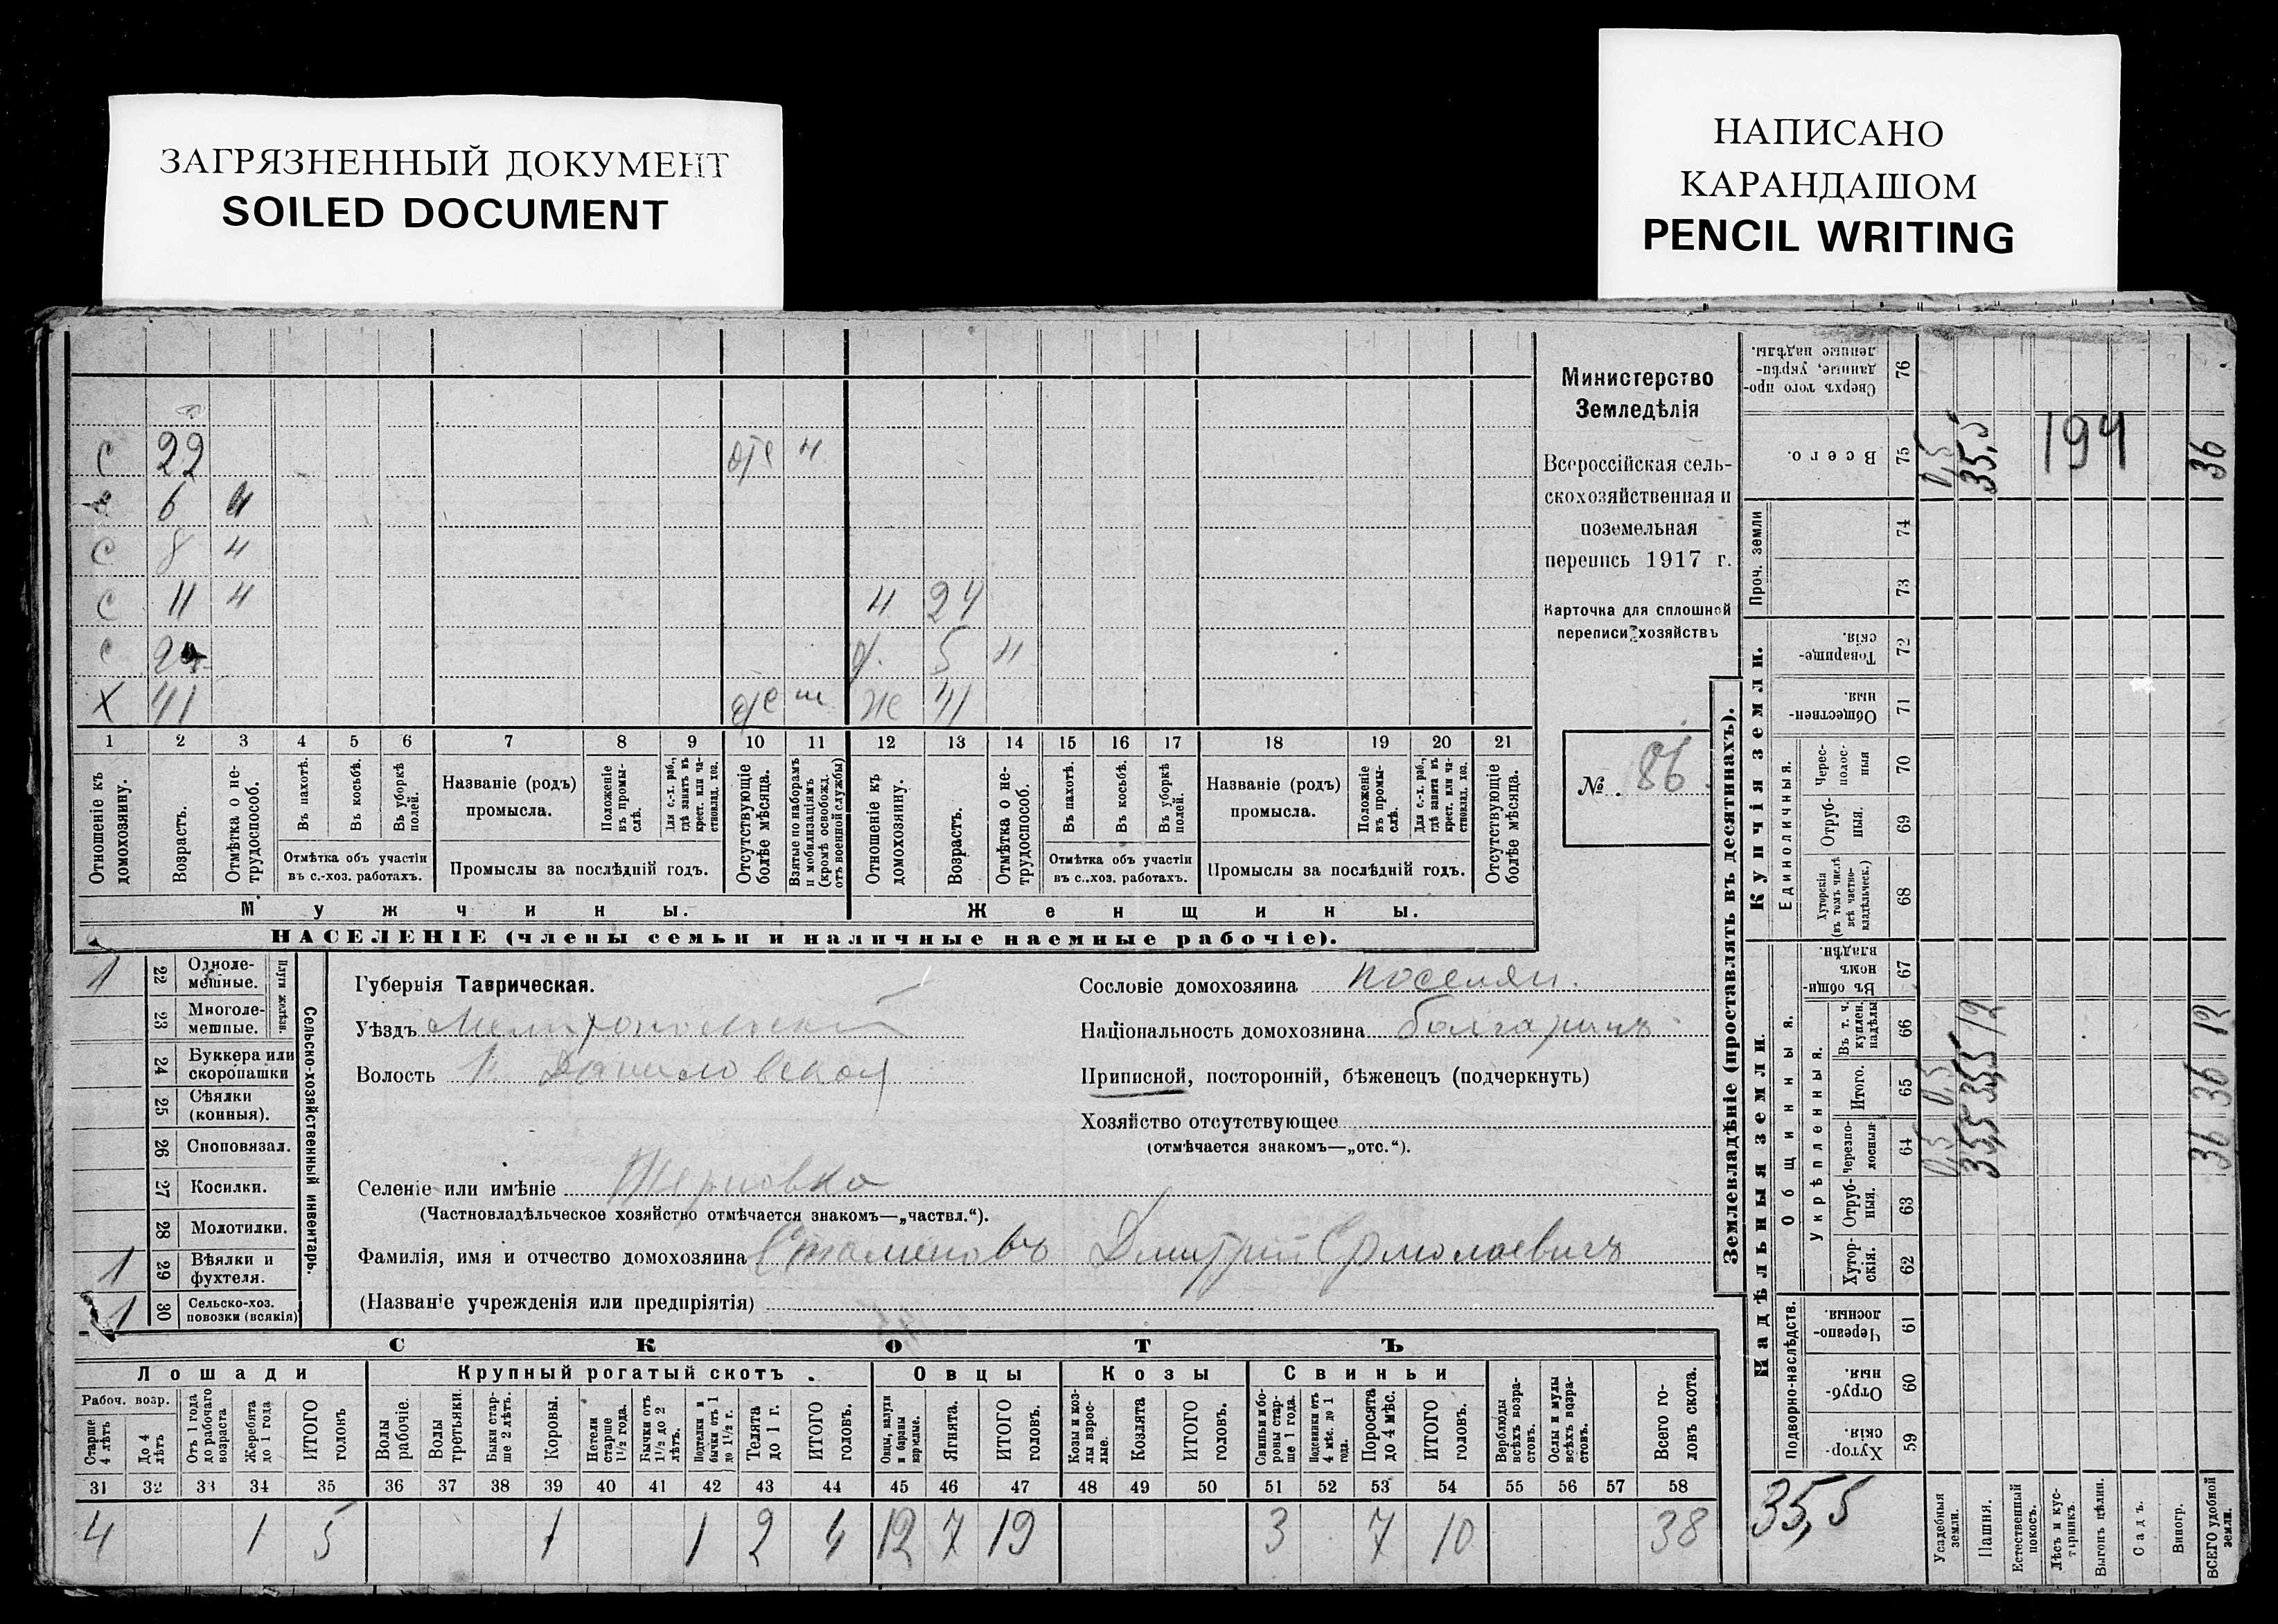 ЗАГРЯЗНЕННЫЙ ДОКУМЕНТ
SOILED DOCUMENT
НАПИСАНО
КАРАНДАШОМ
PENCIL WRITING
С 22 отс
6
С 8
С 11 24
С 5
Х 41 отс ж 41
1 2 3 4 5 6 7 8 9 10 11 12 13 14 15 16 17 18 19 20 21
Отношеніе къ домохозяину.
Возрастъ.
Отмѣтка о нетрудоспособ.
Въ пахотѣ.
Въ косьбѣ.
Въ уборкѣ полей.
Отмѣтка объ участіи
въ с.-хоз. работахъ.
Названіе (родъ)
промысла.
Положеніе въ промыслѣ.
Для с.-х. раб., гдѣ занятъ въ крест. или частновлад. хоз.
Промыслы за послѣдній годъ.
Отсутствующіе болѣе мѣсяца.
Взятые по наборамъ и мобилизаціямъ (кромѣ освобожд. отъ военной службы)
Отношеніе къ домохозяину.
Возрастъ.
Отмѣтка о нетрудоспособ.
Въ пахотѣ.
Въ косьбѣ.
Въ уборкѣ полей.
Отмѣтка объ участіи
въ с.-хоз. работахъ.
Названіе (родъ)
промысла.
Положеніе въ промыслѣ.
Для с.-х. раб., гдѣ занята въ крест. или частновлад. хоз.
Промыслы за послѣдній годъ.
Отсутствующіе болѣе мѣсяца.
Мужчины.
Женщины.
НАСЕЛЕНІЕ (члены семьи и наличные наемные рабочіе).
Министерство
Земледѣлія
Всероссійская сель-
скохозяйственная и
поземельная
перепись 1917 г.
Карточка для сплошной
переписи хозяйствъ
№ 86
1 22 Одноле-
мешные.
23 Многоле-
мешные.
Плуги желѣзн.
24 Буккера или
скоропашки
25 Сѣялки
(конныя).
26 Сноповязал.
27 Косилки.
28 Молотилки.
1 29 Вѣялки и
фухтеля.
1 30 Сельско-хоз.
повозки (всякія)
Сельско-хозяйственный инвентарь.
Губернія Таврическая.
Уѣздъ Мелитопольскій
Волость Н. Даниловская
Селеніе или имѣніе
(Частновладѣльческое хозяйство отмѣчается знакомъ—„частвл.“).
Фамилія, имя и отчество домохозяина Стаменовъ Дмитрій Ермолаевичъ
(Названіе учрежденія или предпріятія)
Сословіе домохозяина поселян.
Національность домохозяина болгаринъ
Приписной, посторонній, бѣженецъ (подчеркнуть)
Хозяйство отсутствующее
(отмѣчается знакомъ—„отс.“).
СКОТЪ
Лошади Крупный рогатый скотъ. Овцы Козы Свиньи
Рабоч. возр.
Старше 4 лѣтъ
До 4 лѣтъ
Отъ 1 года до рабочаго возраста
Жеребята до 1 года
ИТОГО головъ
Волы рабочіе.
Волы третьяки.
Быки старше 2 лѣтъ.
Коровы.
Нетели старше 1½ года.
Бычки отъ 1½ до 2 лѣтъ.
Подтелки и бычки отъ 1 до 1½ г.
Телята до 1 г.
ИТОГО головъ.
Овцы, валухи и бараны взрослые.
Ягнята.
ИТОГО головъ.
Козы и козлы взрослые.
Козлята
ИТОГО головъ.
Свиньи и боровы старше 1 года.
Подсвинки отъ 4 мѣс. до 1 года.
Поросята до 4 мѣс.
ИТОГО головъ.
Верблюды всѣхъ возрастовъ.
Ослы и мулы всѣхъ возрастовъ.
Всего головъ скота.
31 32 33 34 35 36 37 38 39 40 41 42 43 44 45 46 47 48 49 50 51 52 53 54 55 56 57 58
4 1 5 1 1 2 4 12 7 19 3 7 10 38
Землевладѣніе (проставлять въ десятинахъ).
Купчія земли.
Надѣльныя земли.
Сверхъ того проданные, укрѣпленные надѣлы. 76
Всего. 75 0,5 35,5 194 36
Проч. земли 74 73
Товарищескія. 72
Общественныя. 71
Единоличныя.
Чересполосныя 70
Отрубныя. 69
Хуторскія (въ томъ числѣ всѣ частновладѣльческ.) 68
Общинныя.
Въ общинномъ владѣн. 67
Укрѣпленныя.
Въ т. ч. куплен. надѣлы 66 12 12
Итого. 65 0,5 35,5 36
Черезполосныя 64 0,5 35,5 36
Отрубныя. 63
Хуторскія. 62
Подворно-наслѣдств.
Черезполосныя 61
Отрубныя. 60
Хуторскія. 59
35,5
Усадебныя земли.
Пашня.
Естественный покосъ.
Лѣсъ и кустарникъ.
Выгонъ цѣлин.
Садъ.
Виногр.
ВСЕГО удобной земли.